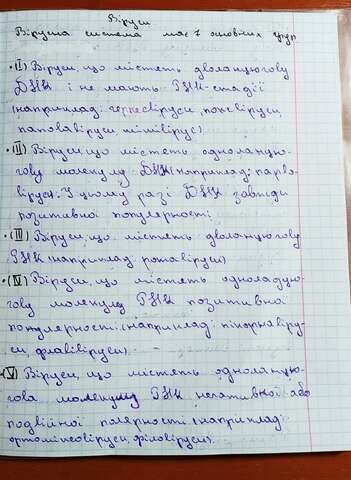 Віруси
Вірусна система має 7 основних груп
• (I) Віруси, що містять дволанцюгову
ДНК і не мають РНК-стадії
(наприклад: герпесвіруси, поксвіруси,
паповавіруси, мімівірус)
• (II) Віруси, що містять одноланцю-
гову молекулу ДНК (наприклад: парво-
віруси). У цьому разі ДНК завжди
позитивної популярності.
• (III) Віруси, що містять дволанцюгову
РНК (наприклад ротавіруси)
• (IV) Віруси, що містять одноланцю-
гову молекулу РНК позитивної
популярності (наприклад: пікорнавіру-
си, флавівіруси).
• (V) Віруси, що містять одноланцю-
гова молекулу РНК негативної або
подвійної полярності (наприклад:
ортоміксовіруси, філовіруси).